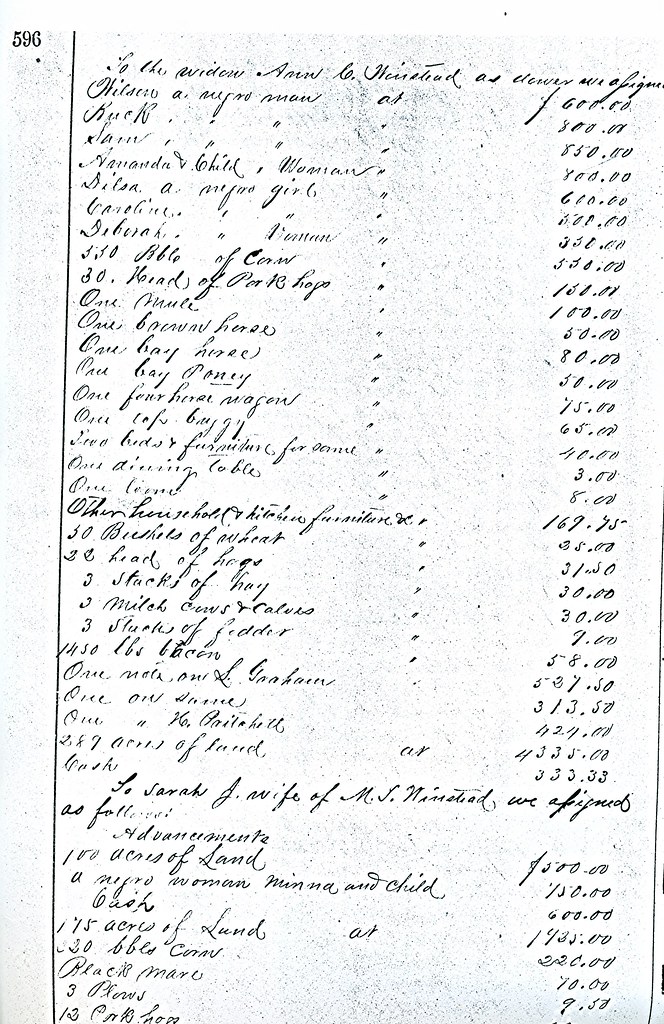 596
To the widow Ann C. Winstead as dower we assigned
Wilson a negro man at $ 600.00
Ruck " " " " 800.00
Sam " " " " 850.00
Amanda & Child " Woman " 800.00
Dilsa a negro girl " 600.00
Caroline " " " " 500.00
Deborah " Woman " 350.00
550 Bbls of Corn " 550.00
30 Head of Pork hogs " 150.00
One Mule " 100.00
One brown horse 50.00
One bay horse " 80.00
One bay Poney " 50.00
One four horse wagon " 75.00
One top buggy " 65.00
Two beds & furniture for same " 40.00
One dining table " 3.00
One loom " 8.00
Other household & kitchen furniture &c " 169.75
50 Bushels of wheat " 25.00
22 head of hogs " 31.50
3 stacks of hay " 30.00
3 Milch cows & calves " 30.00
3 stacks of fodder " 9.00
1450 lbs bacon " 58.00
One note on S. Graham " 527.50
One on same 313.50
One " H. Pritchett 424.00
289 acres of land at 4335.00
Cash 333.33
To Sarah J. wife of M. S. Winstead, we assigned
as follows
Advancements
100 acres of Land $500.00
a negro woman Minna and child 750.00
Cash 600.00
175 acres of Land at 1435.00
220 bbls corn 220.00
Black mare 70.00
3 Plows 9.50
12 Pork hogs